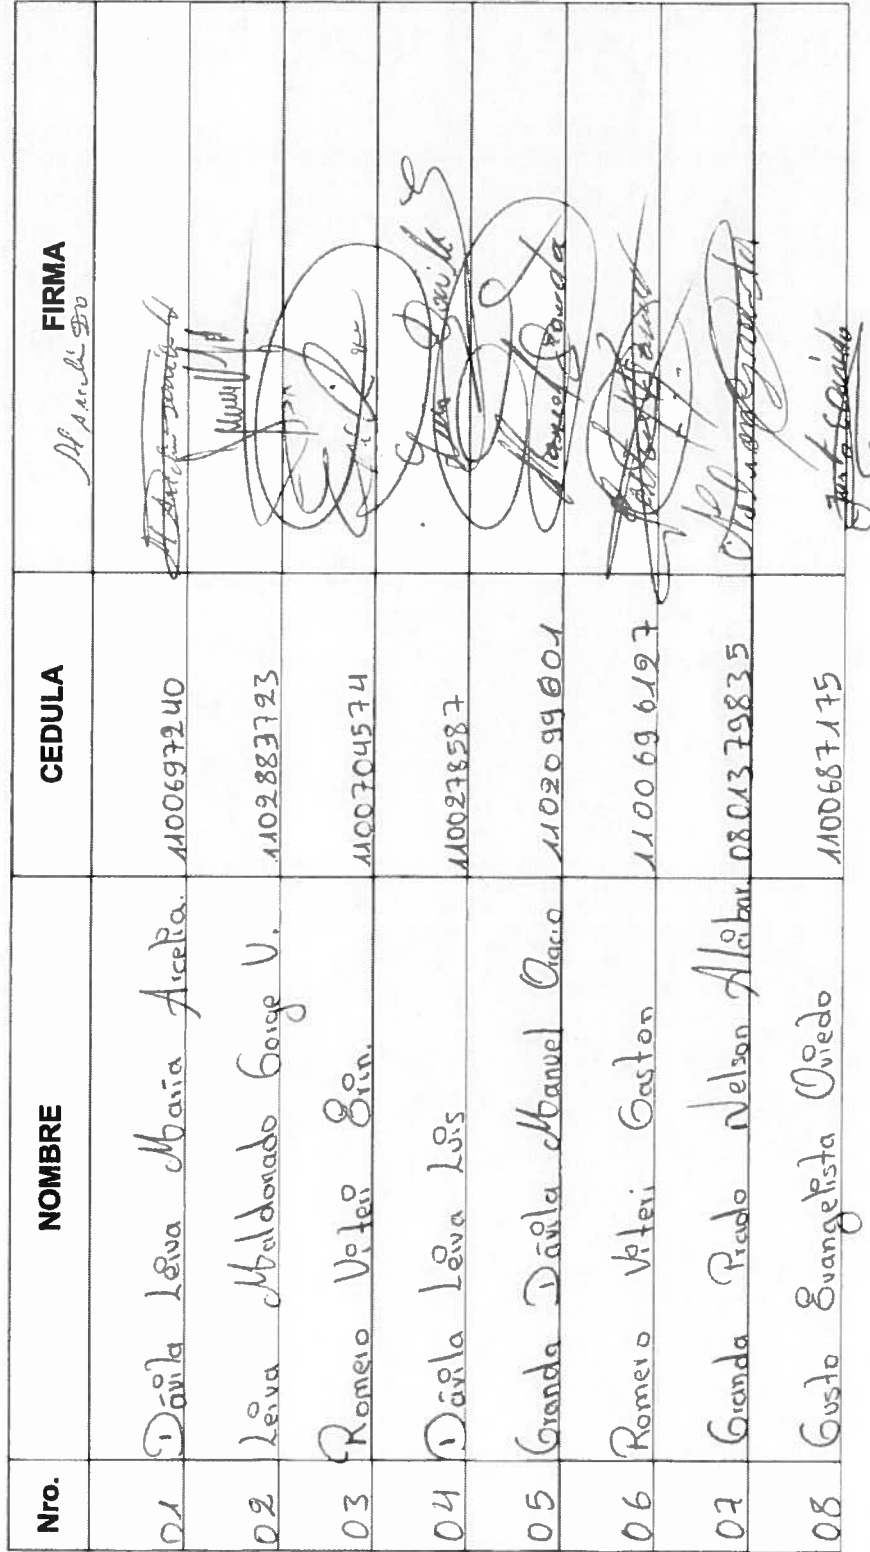 Nro. NOMBRE CEDULA FIRMA
01 Dávila Leiva María Arcelia. 1100697240
02 Leiva Maldonado Gorge V. 1102883723
03 Romero Viteri Erin. 1100704574
04 Dávila Leiva Luis 1100278587 Luis Davila
05 Granda Dávila Manuel Oracio 1102099601 Manuel Granda
06 Romero Viteri Gaston 1100696197
07 Granda Prado Nelson Alcibar. 0801379835
08 Gusto Evangelista Oviedo 1100687175